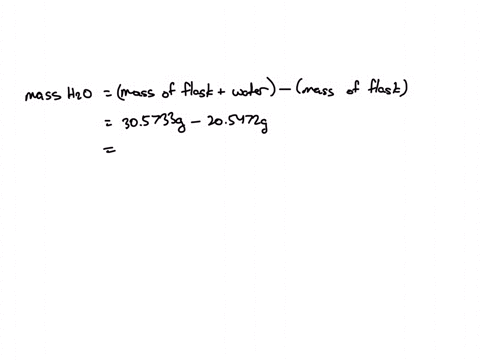 mass H2O = (mass of flask + water) - (mass of flask)
= 30.5733g - 20.5472g
=